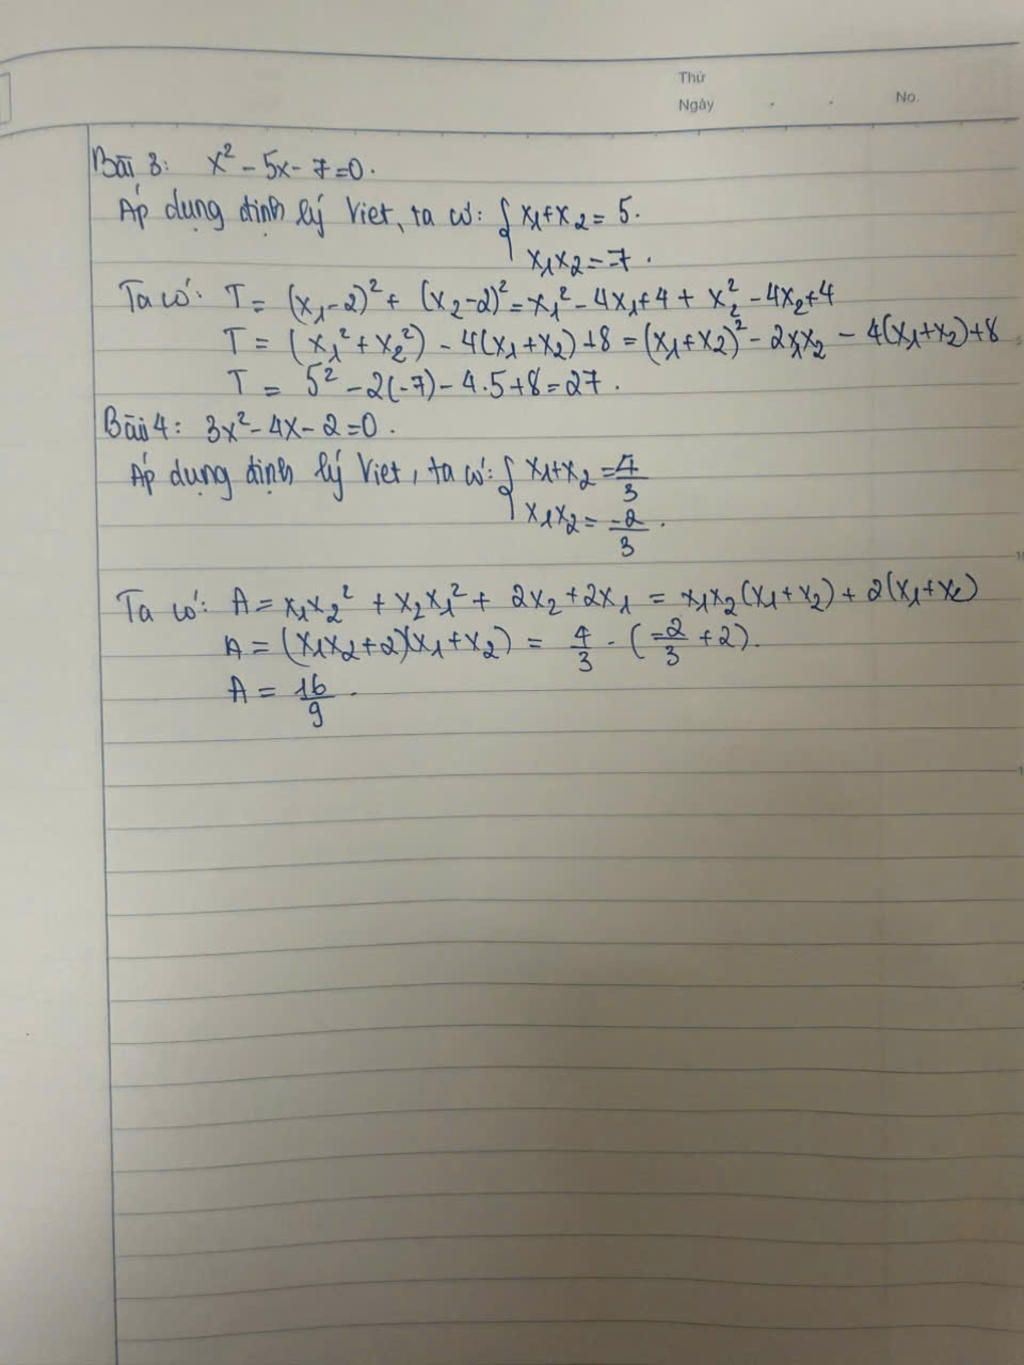 Thứ
Ngày . . No.
Bài 3: x² - 5x - 7 = 0.
Áp dụng định lý Viet, ta có: { x₁+x₂ = 5.
x₁x₂ = -7.
Ta có: T = (x₁-2)² + (x₂-2)² = x₁² - 4x₁+4 + x₂² - 4x₂+4
T = (x₁² + x₂²) - 4(x₁+x₂) + 8 = (x₁+x₂)² - 2x₁x₂ - 4(x₁+x₂)+8
T = 5² - 2(-7) - 4.5+8 = 27.
Bài 4: 3x² - 4x - 2 = 0.
Áp dụng định lý Viet, ta có: { x₁+x₂ = 4/3
x₁x₂ = -2/3.
Ta có: A = x₁x₂² + x₂x₁² + 2x₂ + 2x₁ = x₁x₂(x₁+x₂) + 2(x₁+x₂)
A = (x₁x₂+2)(x₁+x₂) = 4/3 . (-2/3 + 2).
A = 16/9.